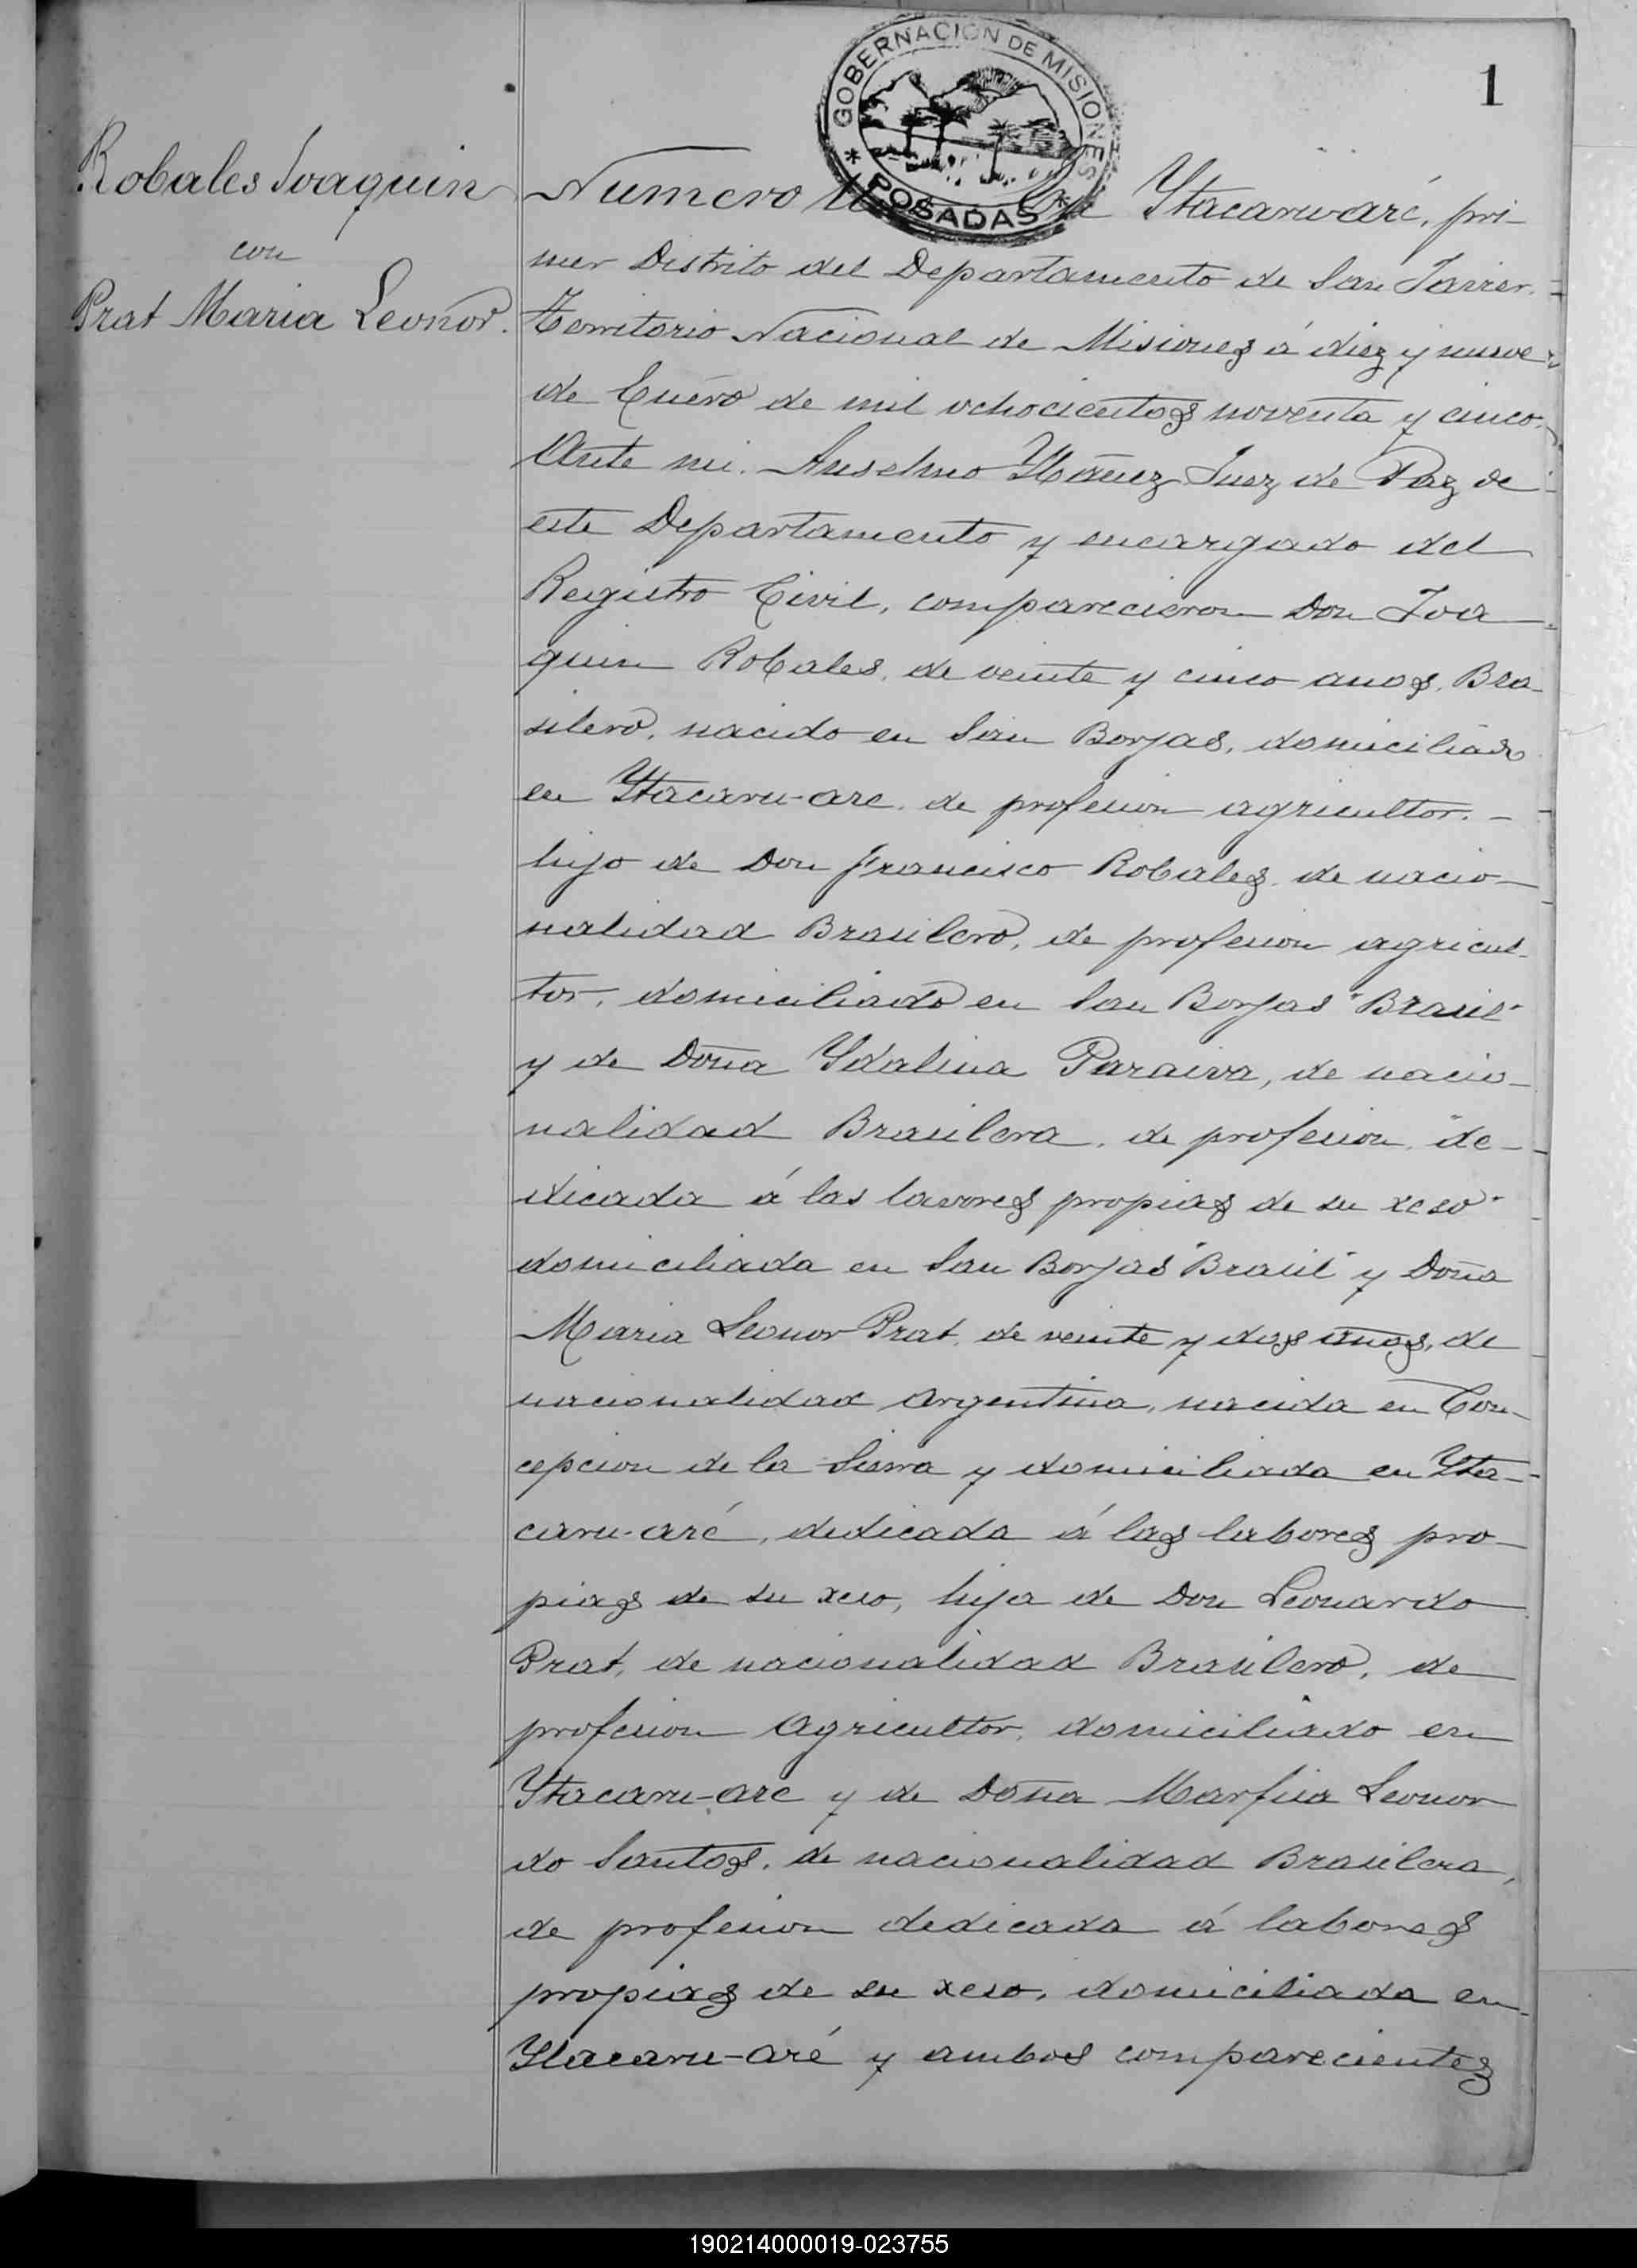 1
GOBERNACION DE MISIONES
* POSADAS *
Robales Joaquin
con
Prat Maria Leonor.
Numero En Ytacaruaré, pri-
mer Distrito del Departamento de San Javier,
Territorio Nacional de Misiones á diez y nueve
de Enero de mil ochocientos noventa y cinco.
Ante mi. Anselmo Ybañez Juez de Paz de
este Departamento y encargado del
Registro Civil, comparecieron Don Joa-
quin Robales, de veinte y cinco anos, Bra-
silero, nacido en San Borjas, domiciliado
en Ytacaru-are, de profesion agricultor. -
hijo de Don Francisco Robales, de nacio-
nalidad Brasilero, de profesion agricul-
tor, domiciliado en San Borjas "Brasil"
y de Doña Ydalina Paraiva, de nacio-
nalidad Brasilera, de profesion, de-
dicada á las lavores propias de su xeso
domiciliada en San Borjas "Brasil" y Doña
Maria Leonor Prat, de veinte y dos años, de
nacionalidad Argentina, nacida en Con-
cepcion de la Sierra y domiciliada en Yta-
caru-aré, dedicada á las labores pro-
pias de su xeso, hija de Don Leonardo
Prat, de nacionalidad Brasilero, de
profesion Agricultor, domiciliado en
Ytacaru-are y de Doña Marfisa Leonor
do Santos, de nacionalidad Brasilera,
de profesion dedicada á labores
propias de su xeso, domiciliada en
Ytacaru-aré y ambos comparecientes
190214000019-023755